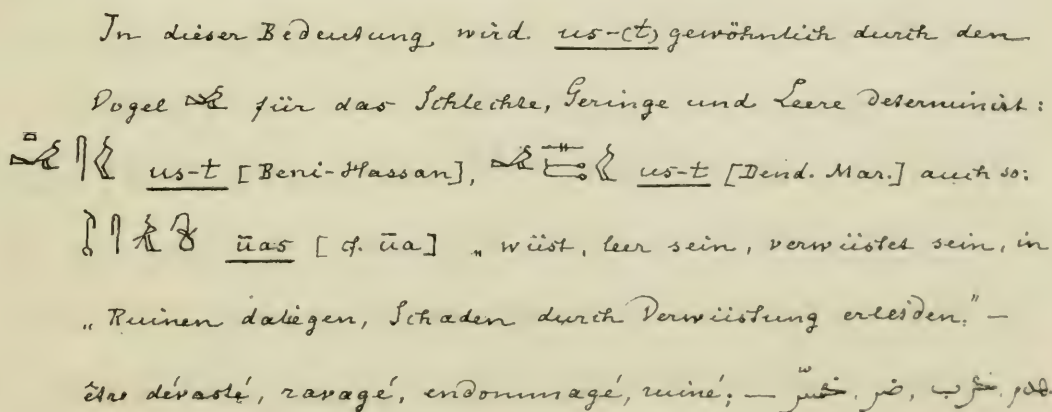 In dieser Bedeutung, wird us-(t) gewöhnlich durch den
Vogel 𓅪 für das Schlechte, Geringe und Leere determinirt:
us-t [Beni-Hassan], us-t [Dend. Mar.] auch so:
ūas [cf. ūa] „wüst, leer sein, verwüstet sein, in
„Ruinen daliegen, Schaden durch Verwüstung erleiden." —
être dévasté, ravagé, endommagé, ruiné; — خسّر, ضر, خرب, هدم